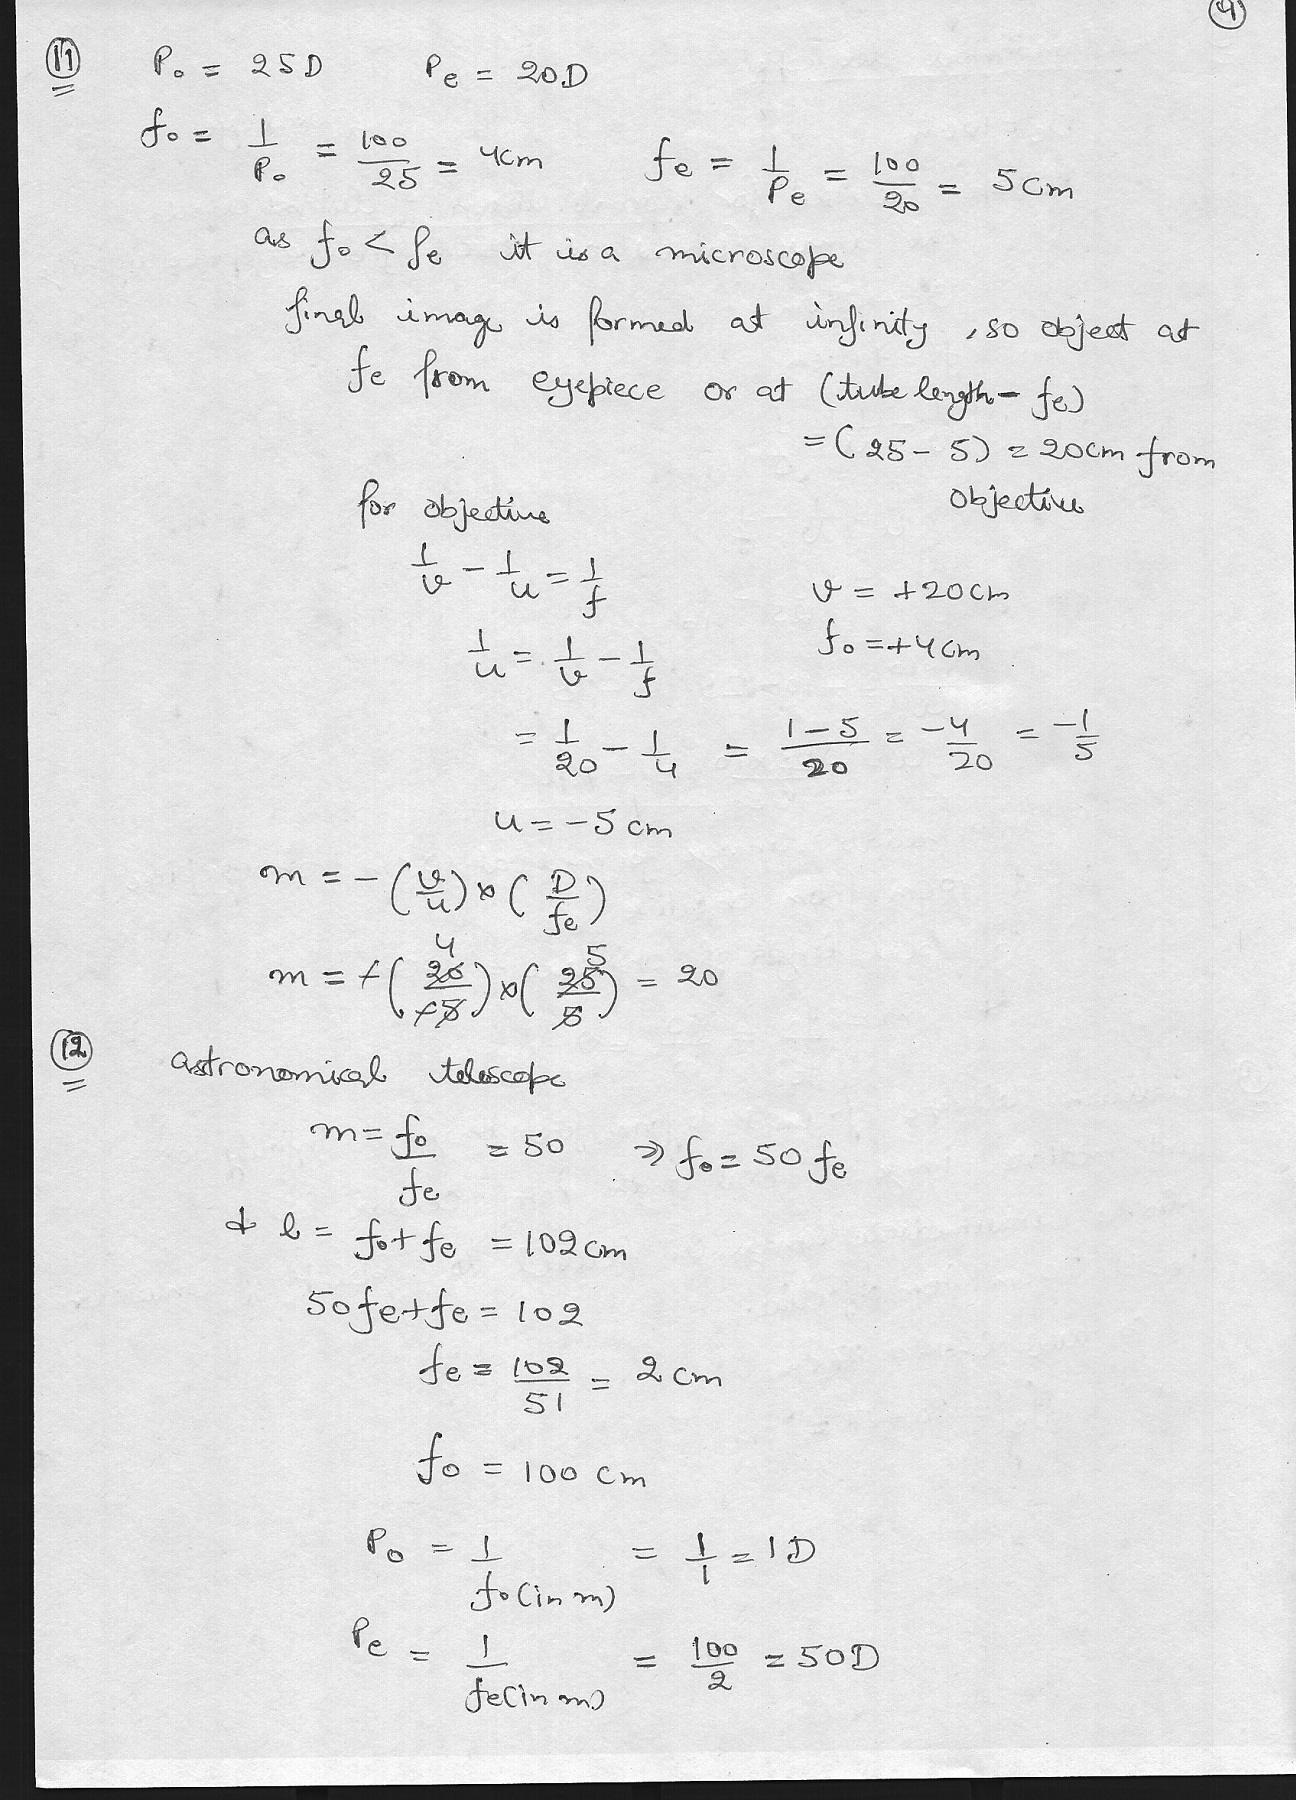 (4)
(11) P₀ = 25D Pe = 20D
f₀ = 1/P₀ = 100/25 = 4cm fe = 1/Pe = 100/20 = 5cm
as f₀ < fe it is a microscope
final image is formed at infinity, so object at
fe from eyepiece or at (tube length - fe)
= (25 - 5) = 20cm from
objective
for objective
1/v - 1/u = 1/f v = +20cm
1/u = 1/v - 1/f f₀ = +4cm
= 1/20 - 1/4 = (1-5)/20 = -4/20 = -1/5
u = -5cm
m = -(v/u) × (D/fe)
m = +(20/+5) × (25/5) = 20
4 5
(12) astronomical telescope
m = f₀/fe = 50 ⇒ f₀ = 50 fe
& l = f₀ + fe = 102cm
50fe + fe = 102
fe = 102/51 = 2cm
f₀ = 100 cm
P₀ = 1/f₀(in m) = 1/1 = 1D
Pe = 1/fe(in m) = 100/2 = 50D